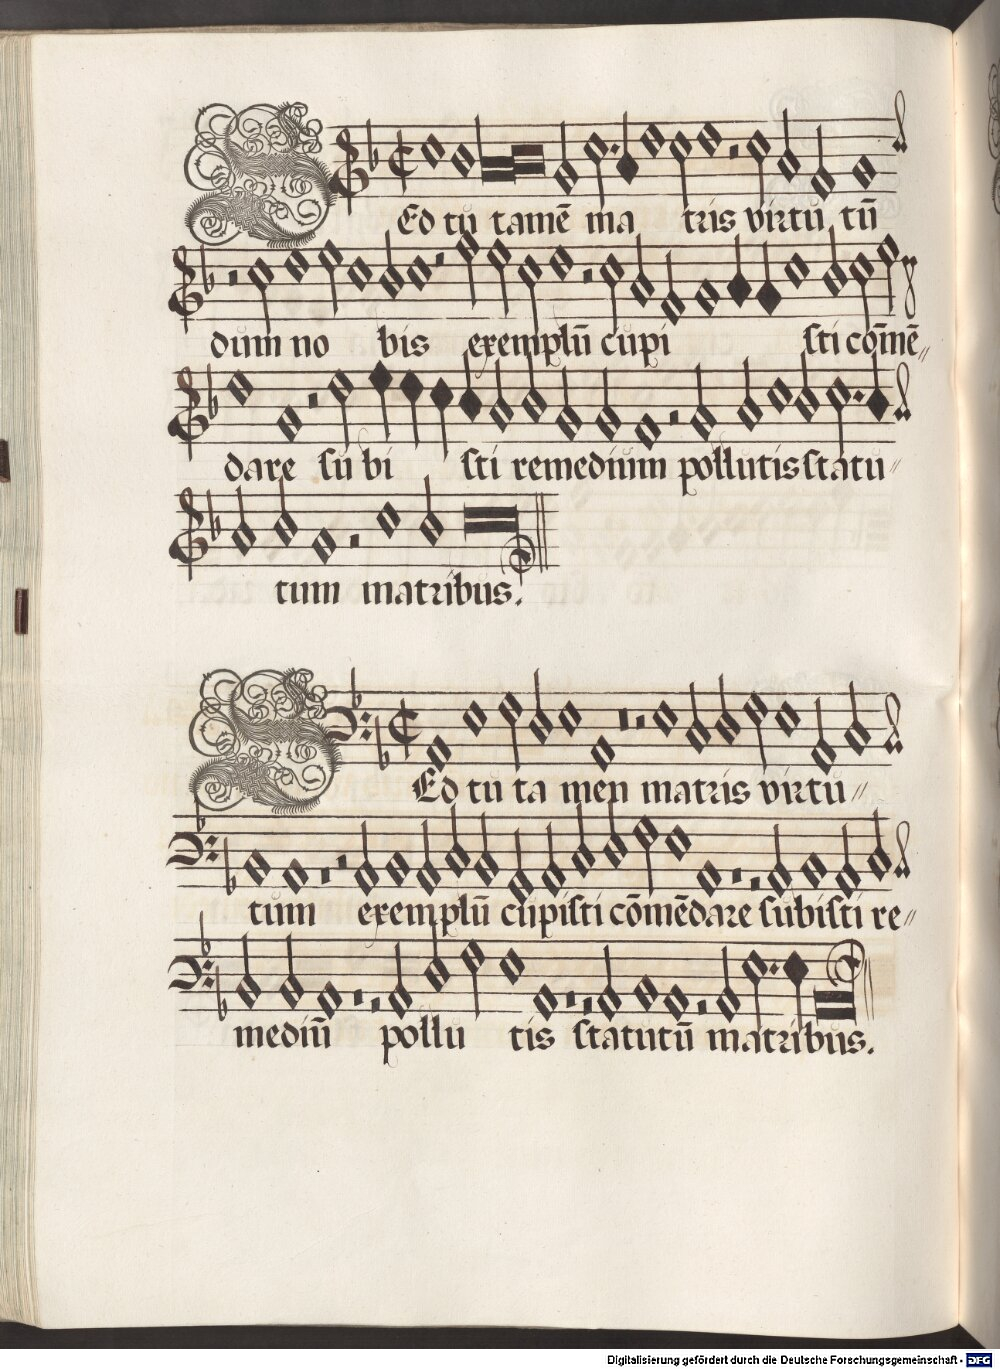 SEd tu tamē ma tris virtu tū
dum no bis exemplū cupi sti com̄ē〃
dare su bi sti remedium pollutis statu〃
tum matribus.
SEd tu ta men matris virtu〃
tum exemplū cupisti cōmēdare subisti re〃
mediū pollu tis statutū matribus.
Digitalisierung gefördert durch die Deutsche Forschungsgemeinschaft - DFG